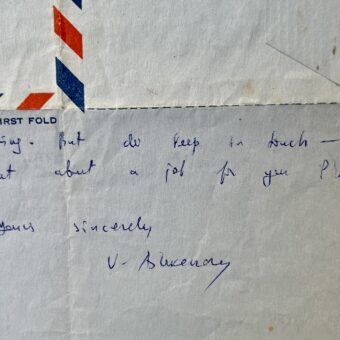 FIRST FOLD
ing. But do keep in touch —
about a job for you
yours sincerely
V.